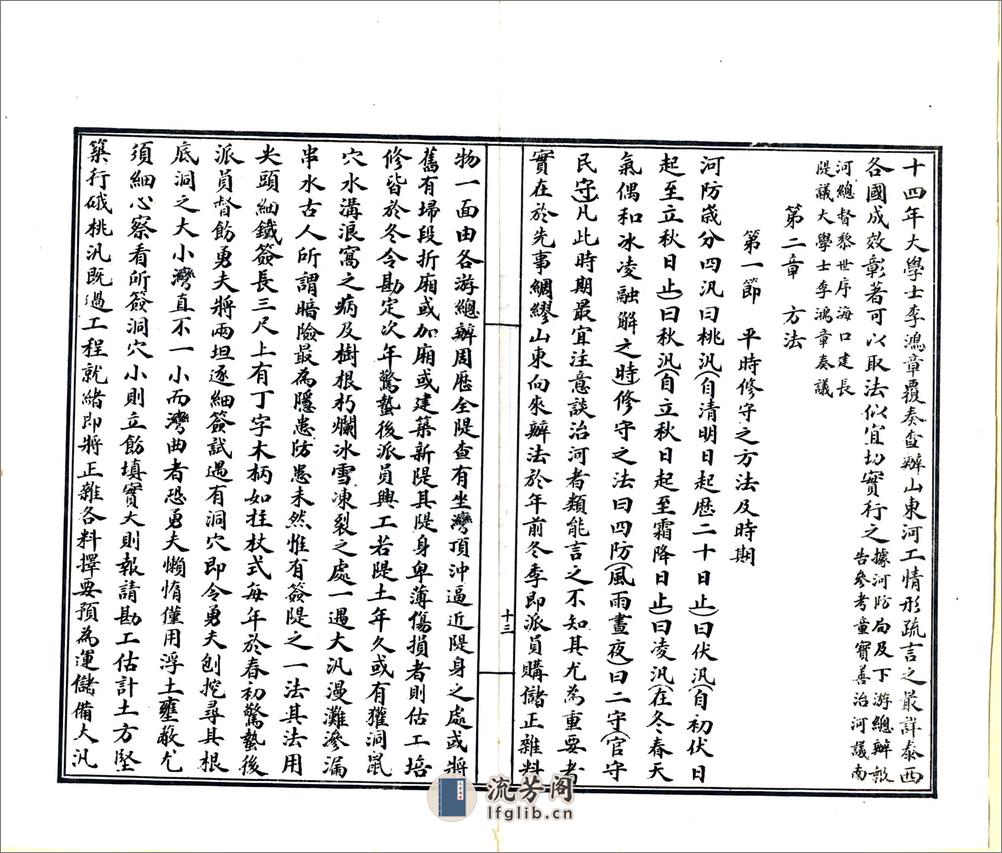 十四年大學士李鴻章覆奏查辦山東河工情形疏言之最詳泰西
各國成效彰著可以取法似宜切實行之據河防局及下游總辦報
告參考童寶善治河議南
河總督黎世序海口建長
隄議大學士李鴻章奏議
第二章 方法
第一節 平時修守之方法及時期
河防歲分四汛曰桃汛(自清明日起歷二十日止)曰伏汛(自初伏日
起至立秋日止)曰秋汛(自立秋日起至霜降日止)曰凌汛(在冬春天
氣偶和冰凌融解之時)修守之法曰四防(風雨晝夜)曰二守(官守
民守)凡此時期最宜注意談治河者類能言之不知其尤為重要者
實在於先事綢繆山東向來辦法於年前冬季即派員購儲正雜料
十三
物一面由各游總辦周歷全隄查有坐灣頂沖逼近隄身之處或將
舊有埽段折廂或加廂或建築新隄其隄身卑薄傷損者則估工培
修皆於冬令勘定次年驚蟄後派員興工若隄土年久或有獾洞鼠
穴水溝浪窩之病及樹根朽爛冰雪凍裂之處一遇大汛漫灘滲漏
串水古人所謂暗險最為隱患防患未然惟有簽隄之一法其法用
尖頭細鐵簽長三尺上有丁字木柄如拄杖式每年於春初驚蟄後
派員督飭勇夫將兩坦逐細簽試遇有洞穴即令勇夫刨挖尋其根
底洞之大小灣直不一小而灣曲者恐勇夫懶惰僅用浮土壅蔽尤
須細心察看所簽洞穴小則立飭填實大則報請勘工估計土方堅
築行硪桃汛既過工程就緒即將正雜各料擇要預為運儲備大汛
流芳阁
lfglib.cn